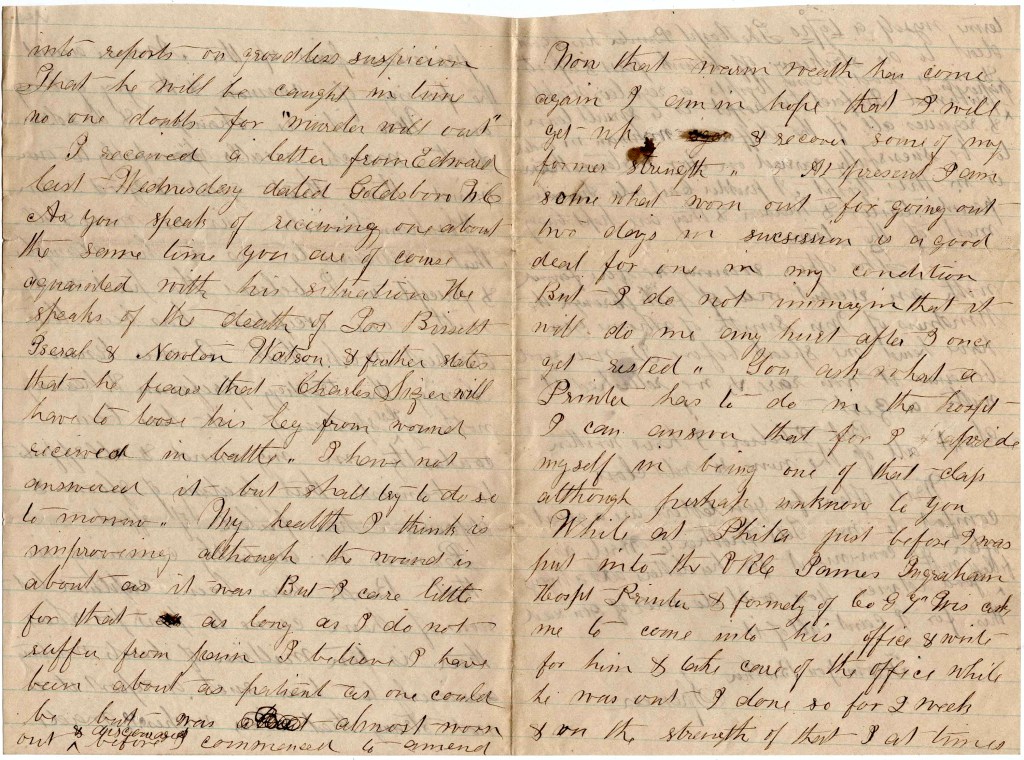 into reports on groudless suspicion
That he will be caught in time
no one doubts for "murder will out"
I received a letter from Edward
last Wednesday dated Goldsboro N.C
As you speak of reciving one about
the same time you are of course
aquainted with his situation He
speaks of the death of Jos Bissett
Iseral & Newton Watson & futher states
that he fears that Charles Sizer will
have to loose his leg from wound
received in battle " I have not
answered it but shall try to do so
to morrow " My health I think is
improveing although the wound is
about as it was But I care little
for that as long as I do not
suffer from pain I believe I have
been about as patient as one could
be but was almost worn
out & discouraged before I commenced to amend
Now that warm weath has come
again I am in hope that I will
get up & recover some of my
former strength " " At present I am
some what worn out for going out
two days in sucsission is a good
deal for one in my condition
But I do not immagin that it
will do me any hurt after I once
get rested " You ask what a
Printer has to do in the hospt
I can answer that for I " pride
myself in being one of that class
although perhaps unknow to you
While at Phila just before I was
put into the VRC James Ingraham
Hospt Printer & formely of Co G 7" Wis ask
me to come into his office & write
for him & take care of the office while
he was out I done so for 1 week
& on the strength of that I at times